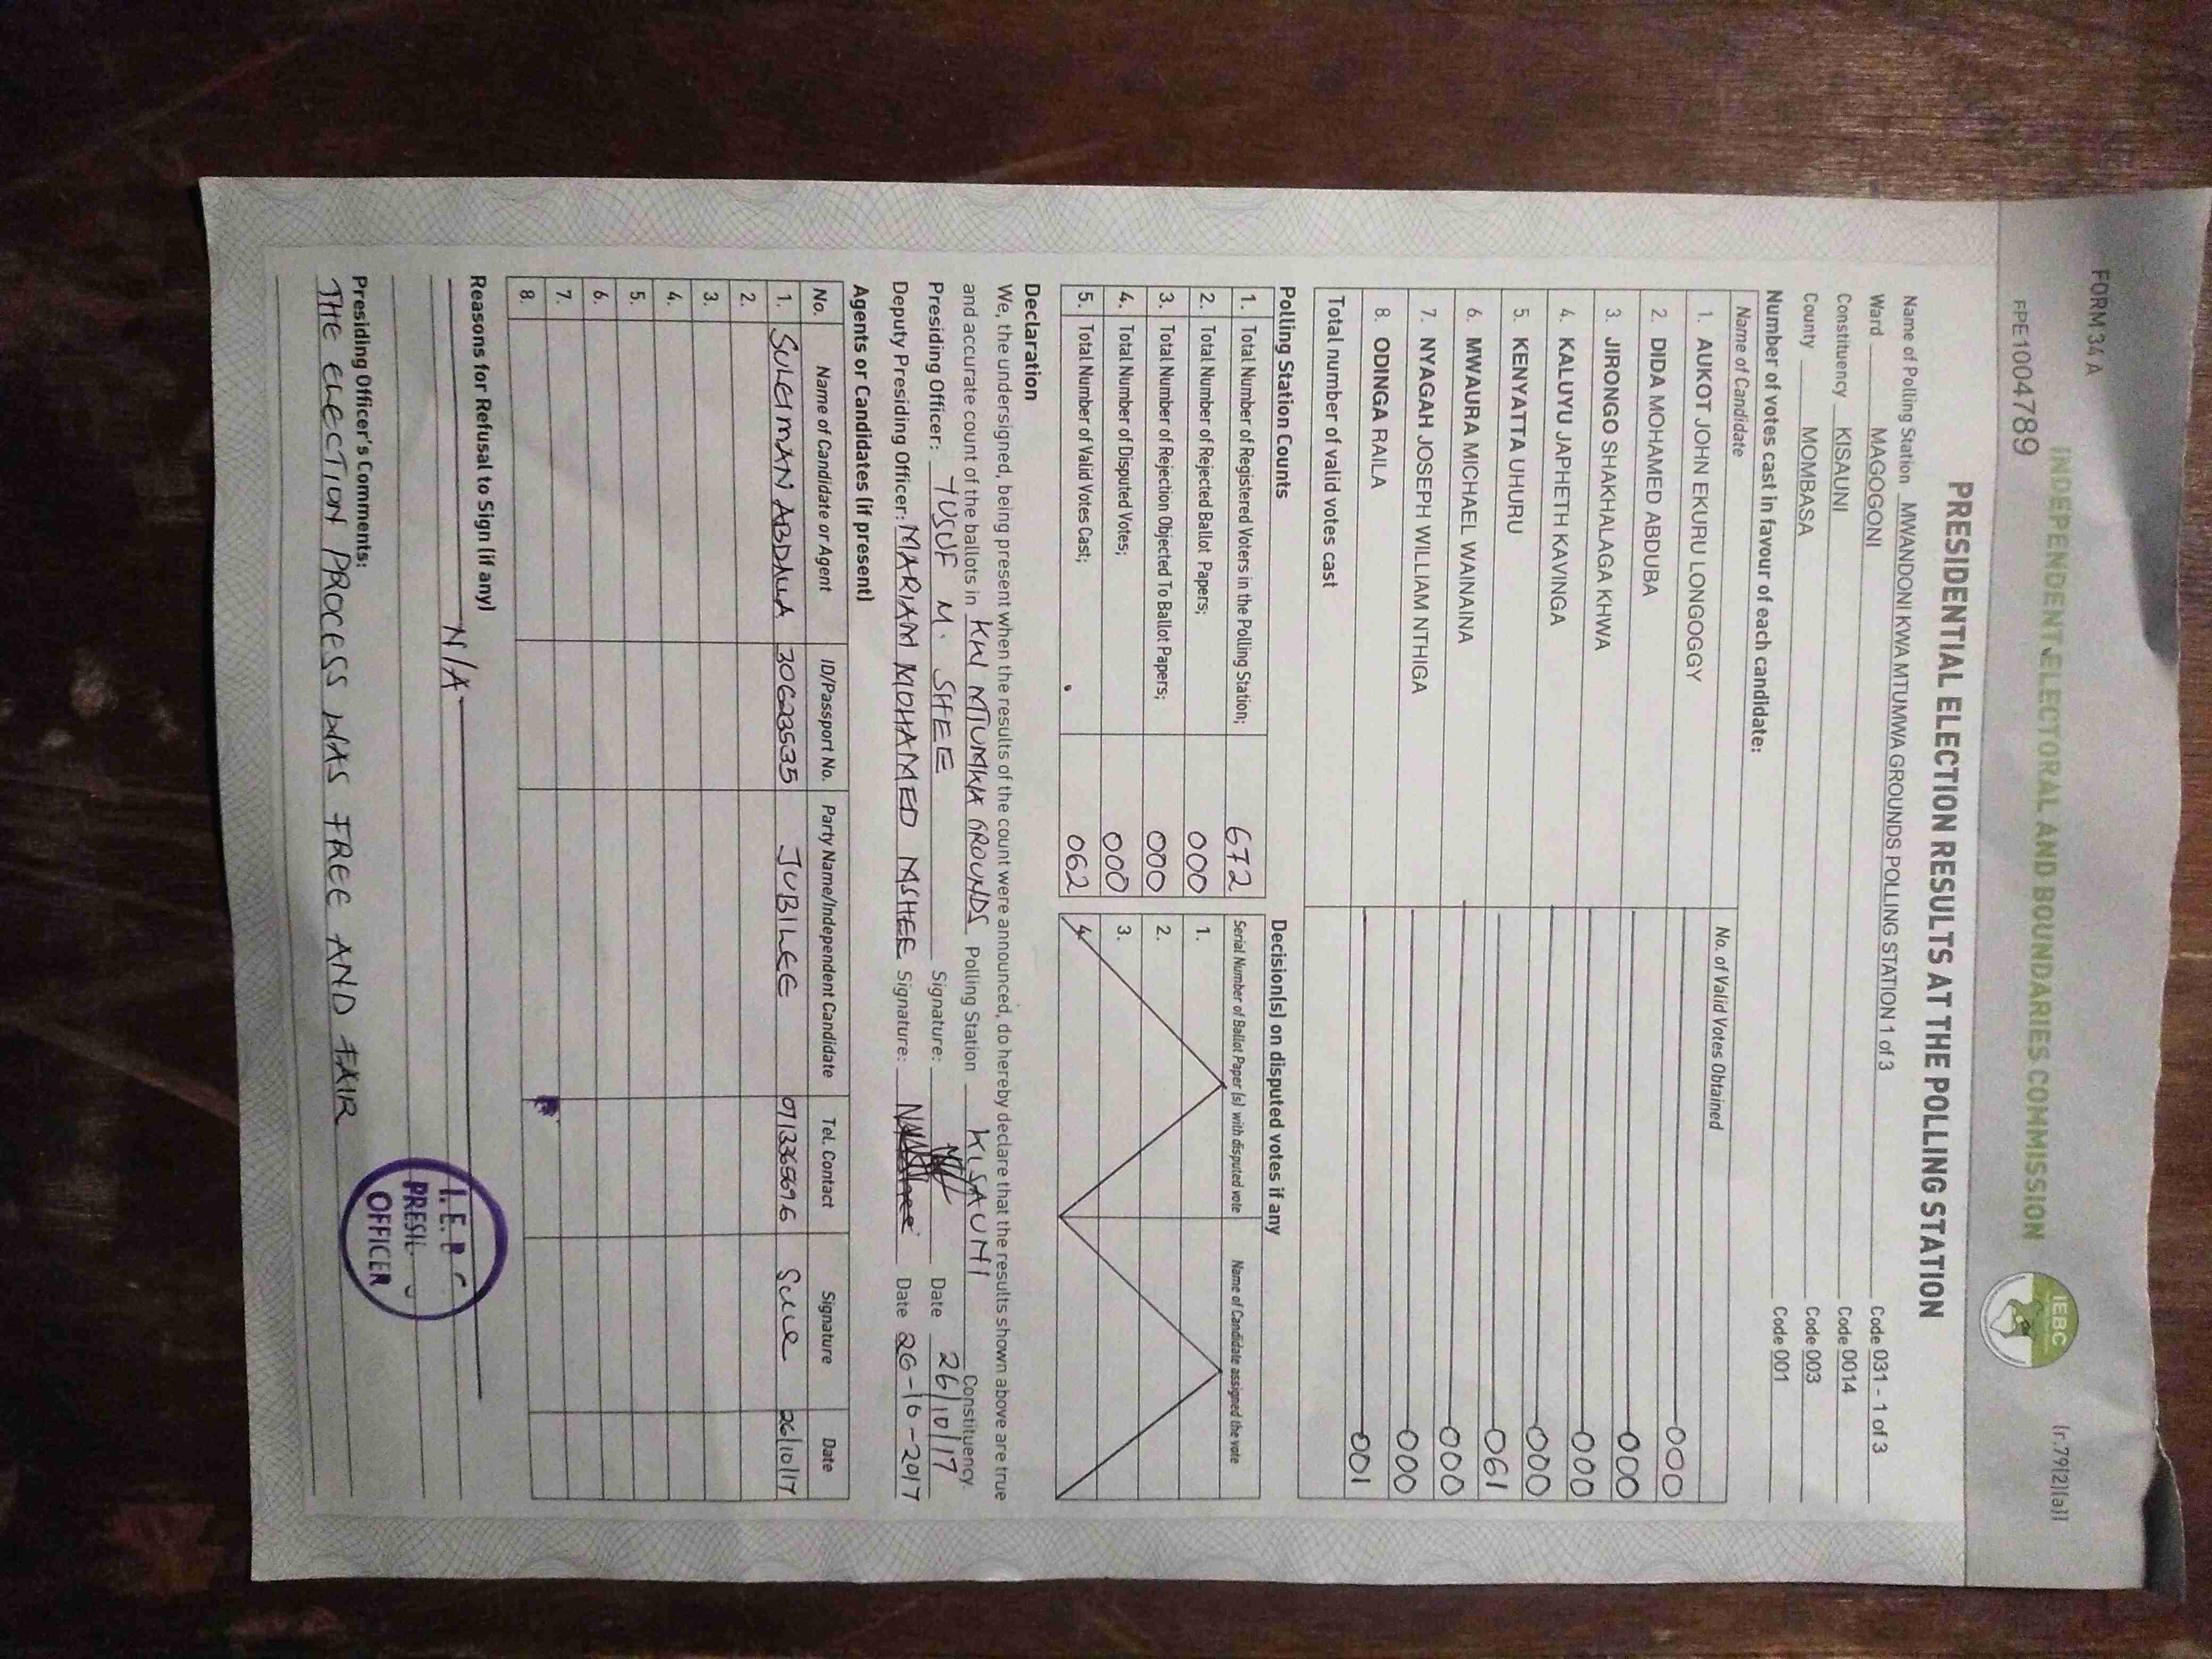 FORM 34 A
(r.79(2)(a))
INDEPENDENT ELECTORAL AND BOUNDARIES COMMISSION
IEBC
FPE1004789
PRESIDENTIAL ELECTION RESULTS AT THE POLLING STATION
Name of Polling Station MWANDONI KWA MTUMWA GROUNDS POLLING STATION 1 of 3 Code 031 - 1 of 3
Ward MAGOGONI Code 0014
Constituency KISAUNI Code 003
County MOMBASA Code 001
Number of votes cast in favour of each candidate:
Name of Candidate No. of Valid Votes Obtained
1. AUKOT JOHN EKURU LONGOGGY 000
2. DIDA MOHAMED ABDUBA 000
3. JIRONGO SHAKHALAGA KHWA 000
4. KALUYU JAPHETH KAVINGA 000
5. KENYATTA UHURU 061
6. MWAURA MICHAEL WAINAINA 000
7. NYAGAH JOSEPH WILLIAM NTHIGA 000
8. ODINGA RAILA 001
Total number of valid votes cast
Polling Station Counts Decision(s) on disputed votes if any
1. Total Number of Registered Voters in the Polling Station; 672 Serial Number of Ballot Paper (s) with disputed vote Name of Candidate assigned the vote
2. Total Number of Rejected Ballot Papers; 000 1.
3. Total Number of Rejection Objected To Ballot Papers; 000 2.
4. Total Number of Disputed Votes; 000 3.
5. Total Number of Valid Votes Cast; 062 4.
Declaration
We, the undersigned, being present when the results of the count were announced, do hereby declare that the results shown above are true
and accurate count of the ballots in KWA MTUMWA GROUNDS Polling Station KISAUNI Constituency.
Presiding Officer: YUSUF M. SHEE Signature: Date 26/10/17
Deputy Presiding Officer: MARIAM MOHAMED MSHEE Signature: Date 26-10-2017
Agents or Candidates (if present)
No. Name of Candidate or Agent ID/Passport No. Party Name/Independent Candidate Tel. Contact Signature Date
1. SULEIMAN ABDALLA 30623535 JUBILEE 0713365696 Sule 26/10/17
2.
3.
4.
5.
6.
7.
8.
Reasons for Refusal to Sign (if any)
N/A
Presiding Officer's Comments:
THE ELECTION PROCESS WAS FREE AND FAIR
I.E.B.C
OFFICER